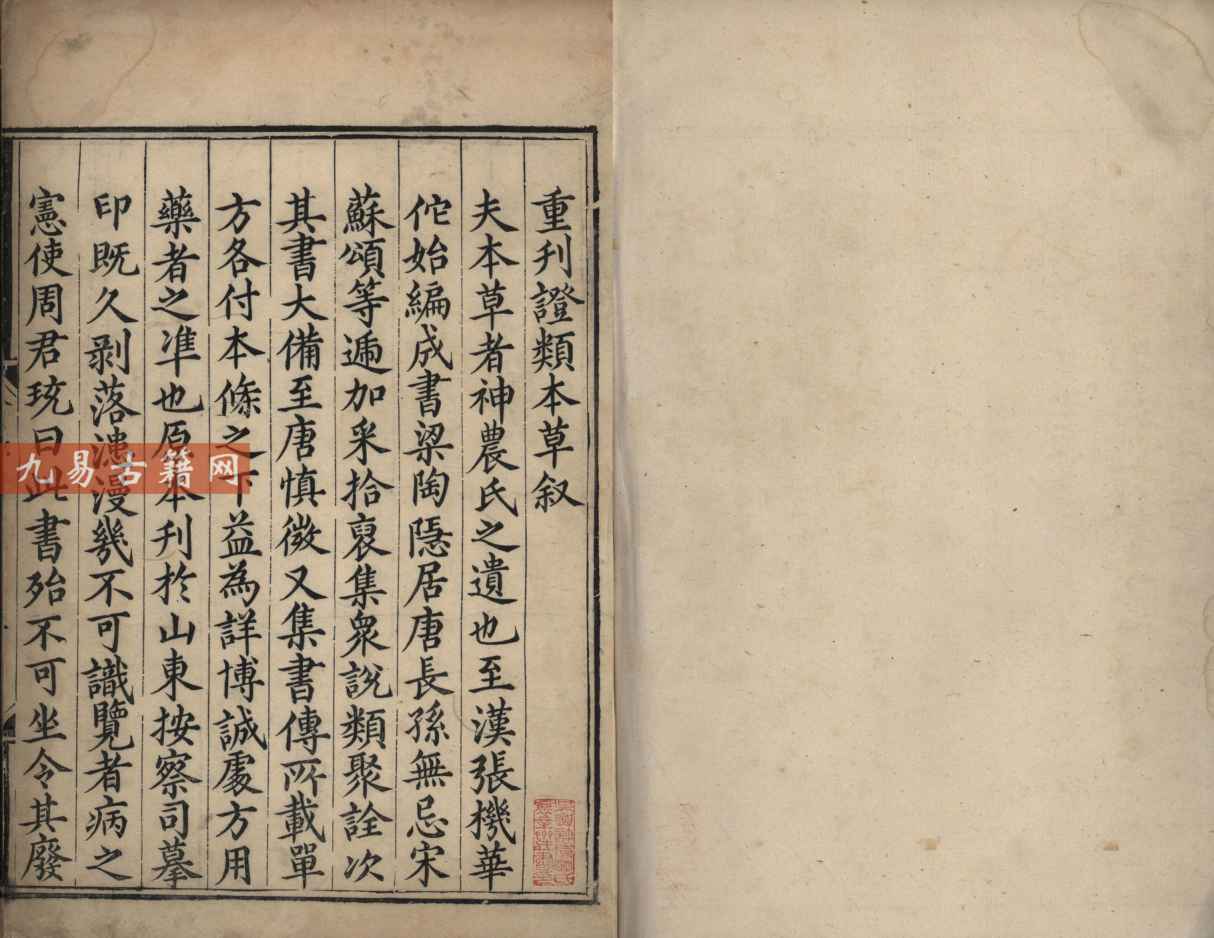 重刋證類本草叙
夫本草者神農氏之遺也至漢張機華
佗始編成書梁陶隱居唐長孫無忌宋
蘇頌等逓加采拾裒集衆說類聚詮次
其書大備至唐慎微又集書傳所載單
方各付本條之下益為詳博誠處方用
藥者之準也原本刋於山東按察司摹
印既久剥落漶漫幾不可識覽者病之
憲使周君珫曰此書殆不可坐令其廢
九易古籍网